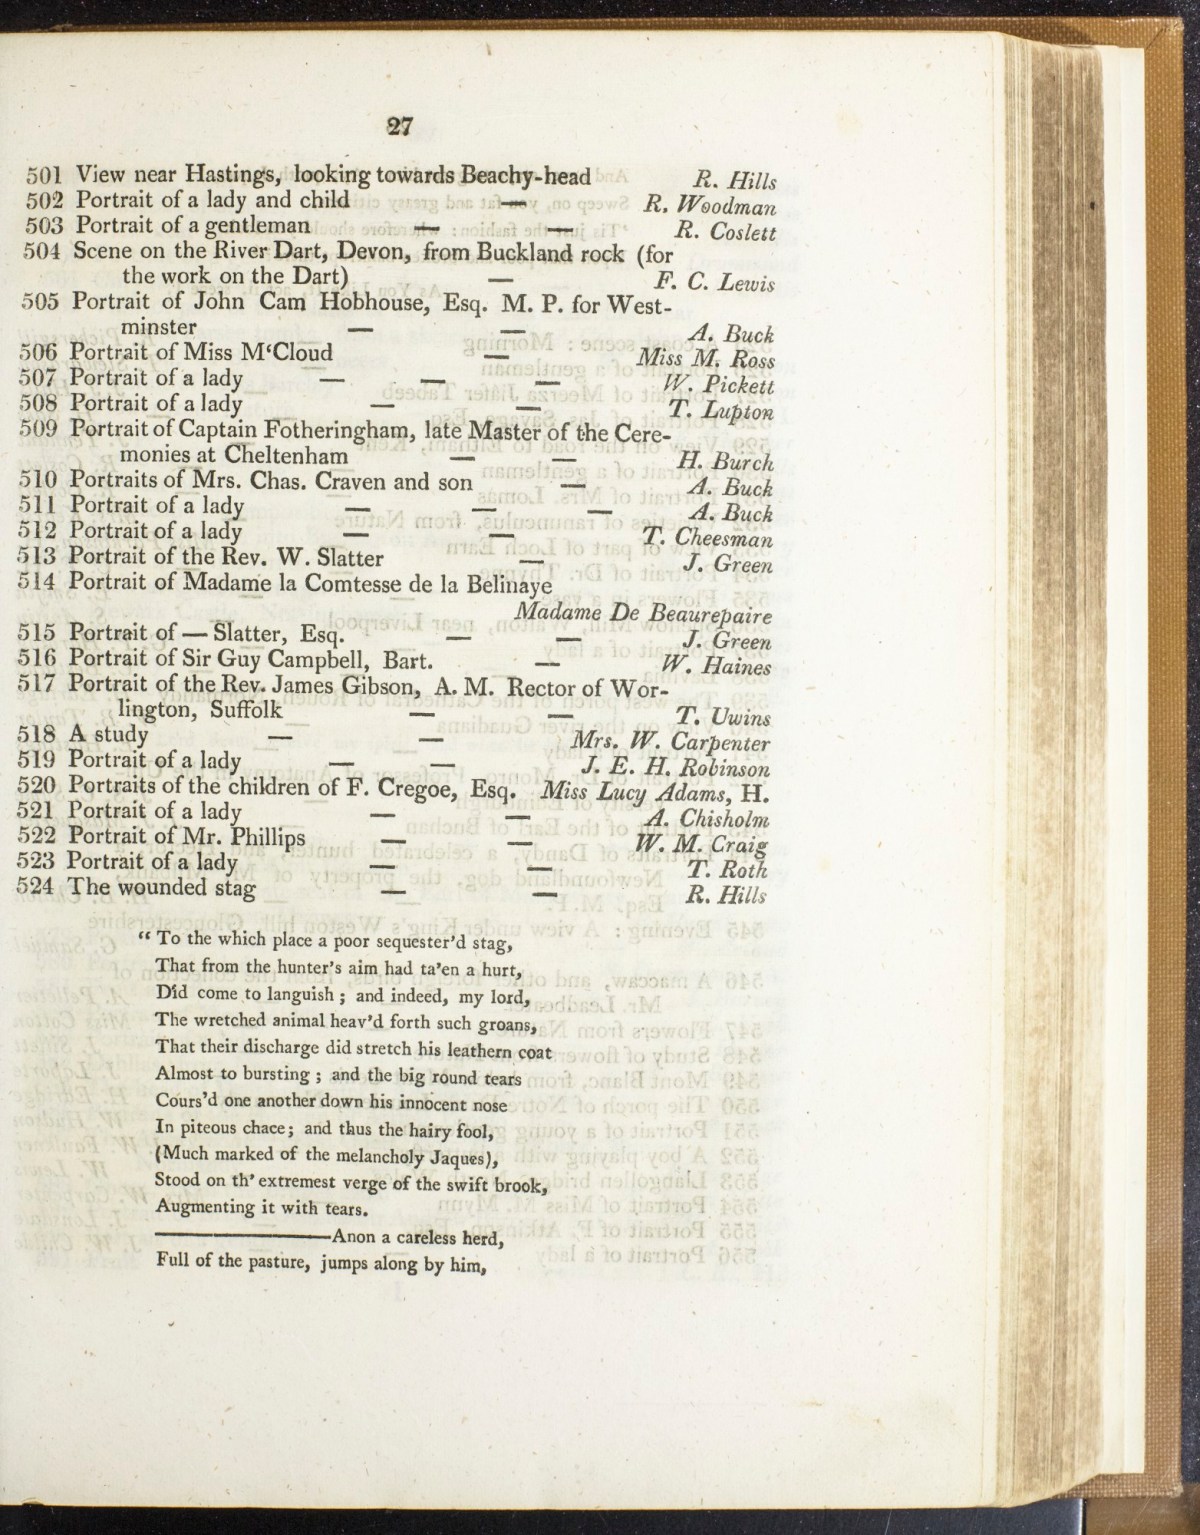 27
501 View near Hastings, looking towards Beachy-head R. Hills
502 Portrait of a lady and child — R. Woodman
503 Portrait of a gentleman — — R. Coslett
504 Scene on the River Dart, Devon, from Buckland rock (for
the work on the Dart) — F. C. Lewis
505 Portrait of John Cam Hobhouse, Esq. M. P. for West-
minster — — A. Buck
506 Portrait of Miss M‘Cloud — Miss M. Ross
507 Portrait of a lady — — — W. Pickett
508 Portrait of a lady — — T. Lupton
509 Portrait of Captain Fotheringham, late Master of the Cere-
monies at Cheltenham — — H. Burch
510 Portraits of Mrs. Chas. Craven and son — A. Buck
511 Portrait of a lady — — — A. Buck
512 Portrait of a lady — — T. Cheesman
513 Portrait of the Rev. W. Slatter — J. Green
514 Portrait of Madame la Comtesse de la Belinaye
Madame De Beaurepaire
515 Portrait of — Slatter, Esq. — — J. Green
516 Portrait of Sir Guy Campbell, Bart. — W. Haines
517 Portrait of the Rev. James Gibson, A. M. Rector of Wor-
lington, Suffolk — — T. Uwins
518 A study — — Mrs. W. Carpenter
519 Portrait of a lady — — J. E. H. Robinson
520 Portraits of the children of F. Cregoe, Esq. Miss Lucy Adams, H.
521 Portrait of a lady — — A. Chisholm
522 Portrait of Mr. Phillips — — W. M. Craig
523 Portrait of a lady — — T. Roth
524 The wounded stag — — R. Hills
“ To the which place a poor sequester’d stag,
That from the hunter’s aim had ta’en a hurt,
Did come to languish ; and indeed, my lord,
The wretched animal heav’d forth such groans,
That their discharge did stretch his leathern coat
Almost to bursting ; and the big round tears
Cours’d one another down his innocent nose
In piteous chace; and thus the hairy fool,
(Much marked of the melancholy Jaques),
Stood on th’ extremest verge of the swift brook,
Augmenting it with tears.
———Anon a careless herd,
Full of the pasture, jumps along by him,